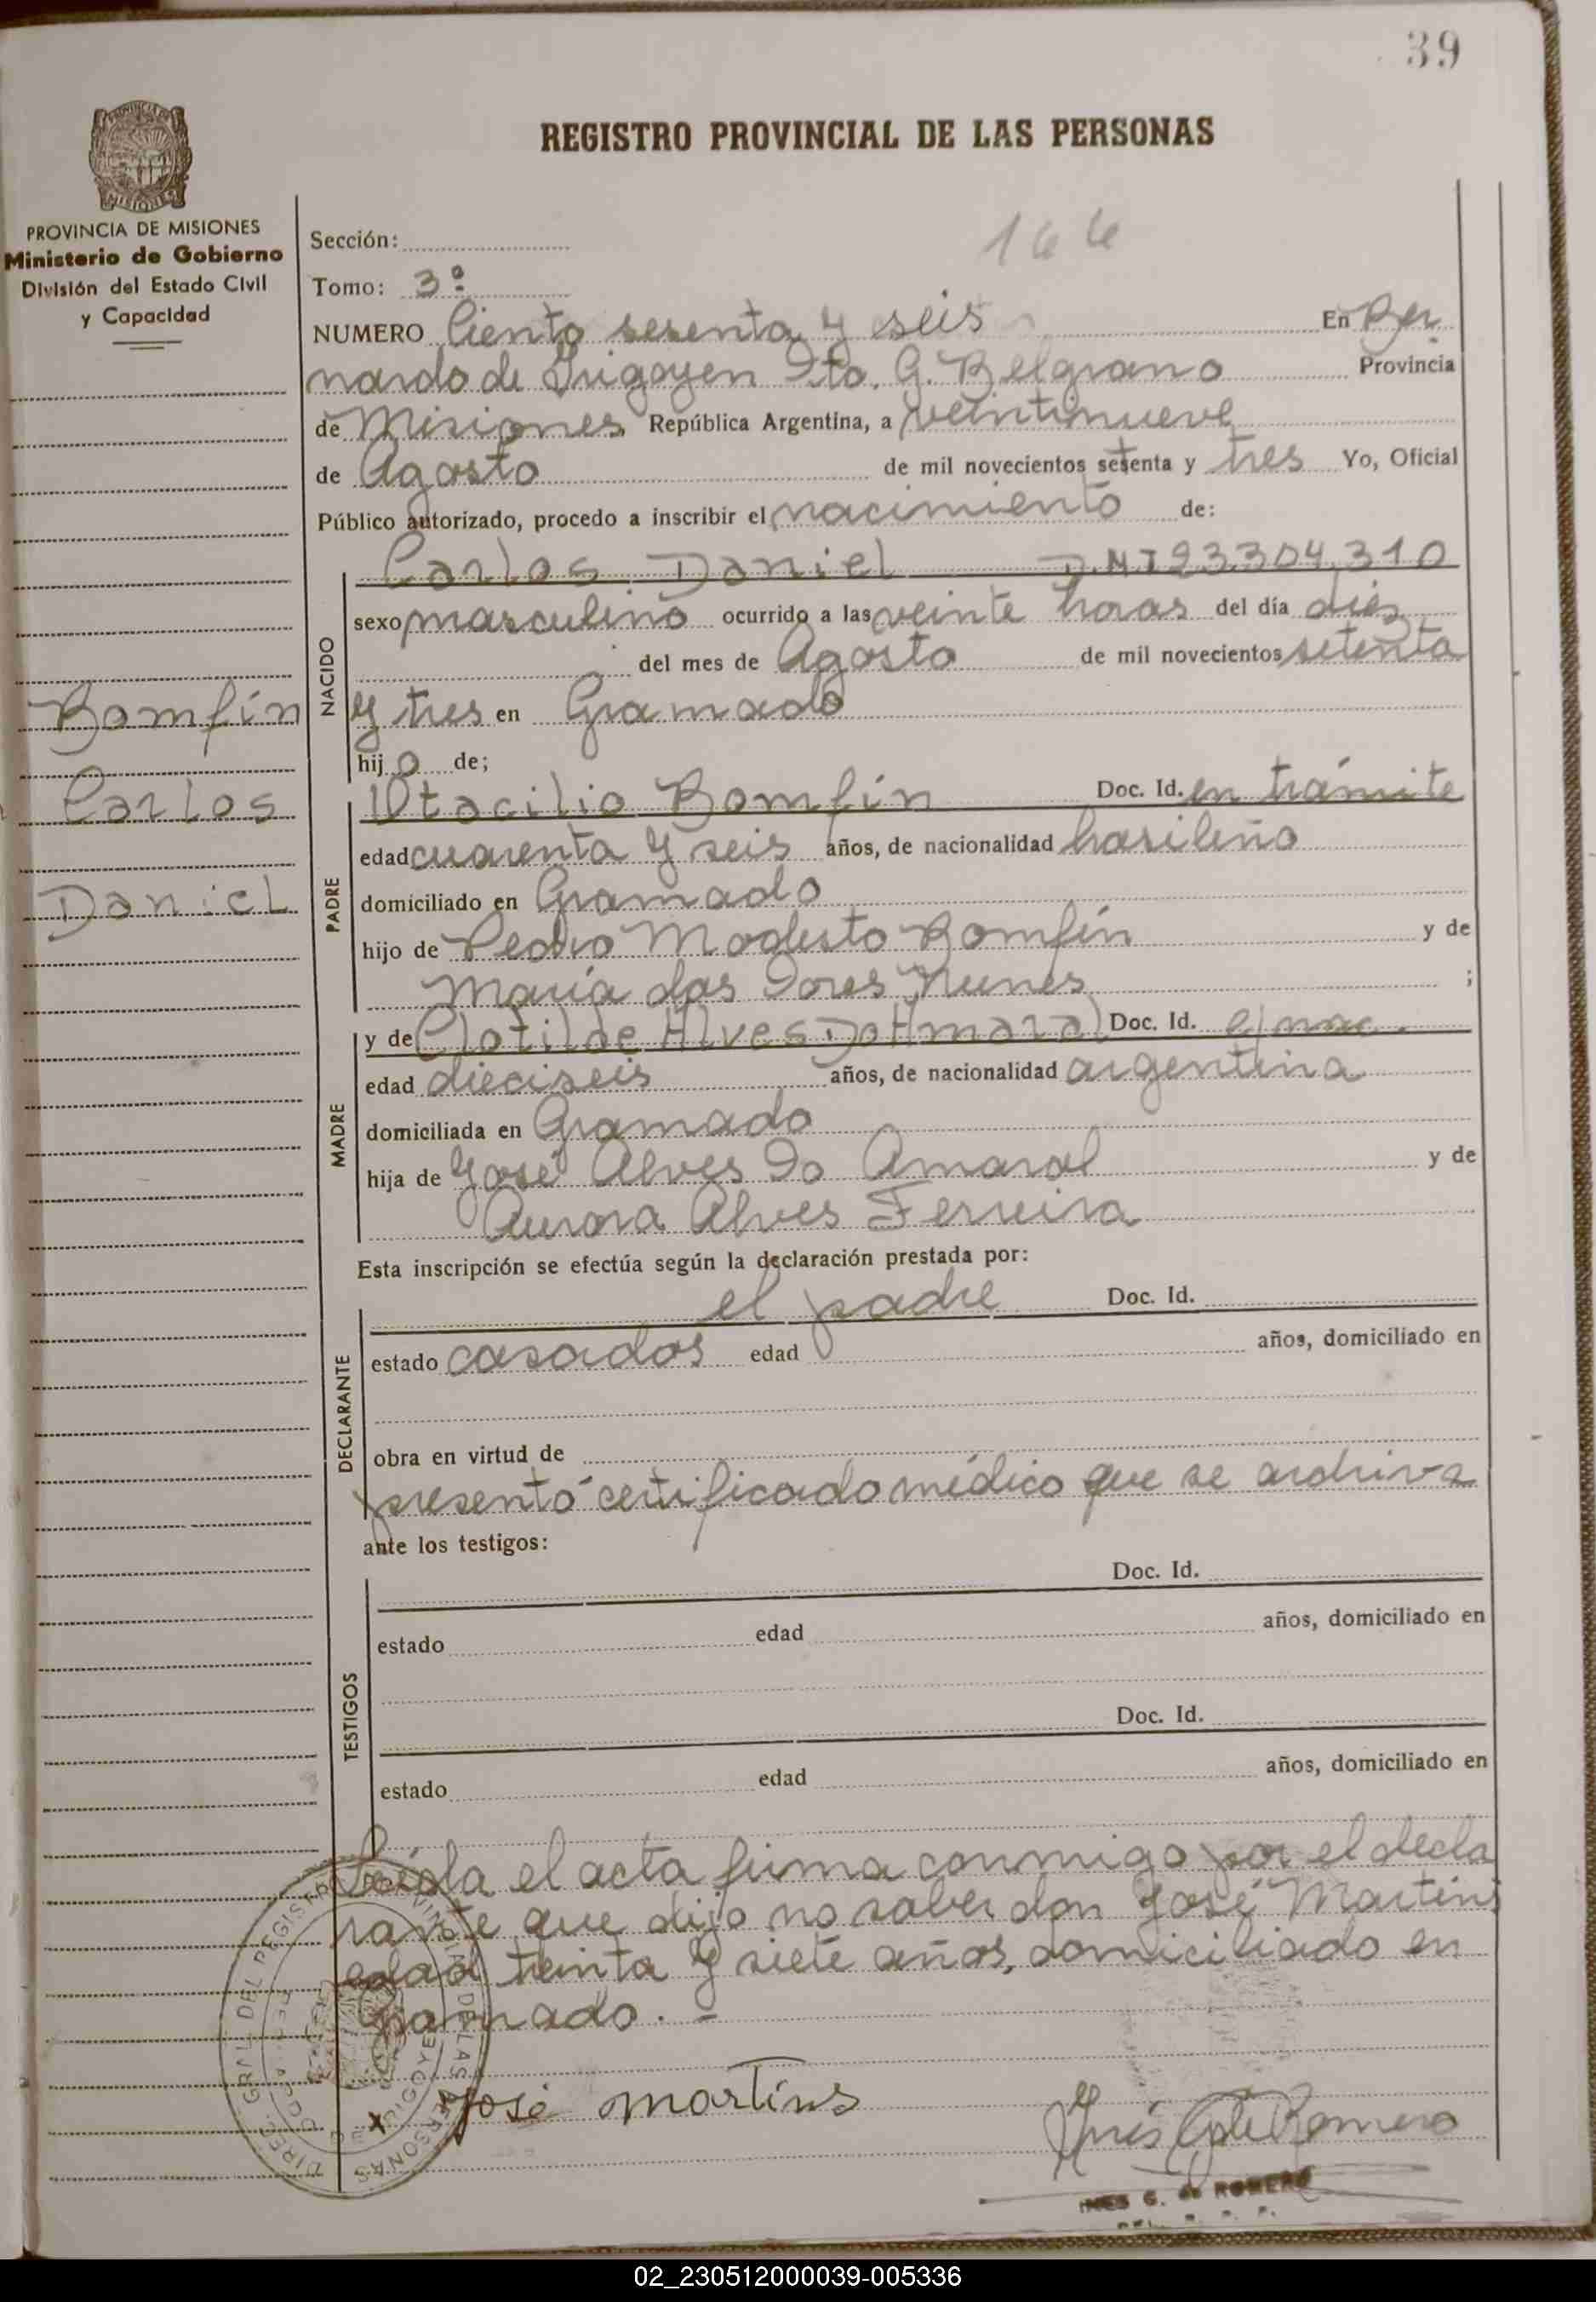 39
REGISTRO PROVINCIAL DE LAS PERSONAS
PROVINCIA DE MISIONES
Ministerio de Gobierno
División del Estado Civil
y Capacidad
166
Sección:
Tomo: 3º
NUMERO Ciento sesenta y seis En Ber
nardo de Irigoyen Dto. G. Belgrano Provincia
de Misiones República Argentina, a veintinueve
de Agosto de mil novecientos setenta y tres Yo, Oficial
Público autorizado, procedo a inscribir el nacimiento de:
Carlos Daniel D.N.I 23.304.310
NACIDO
sexo masculino ocurrido a las veinte horas del día diez
del mes de Agosto de mil novecientos setenta
y tres en Gramado
hijo de;
Bomfín
Carlos
Daniel
PADRE
Otacilio Bomfín Doc. Id. en trámite
edad cuarenta y seis años, de nacionalidad brasileño
domiciliado en Gramado
hijo de Pedro Modesto Bomfín y de
María das Dores Nunes ;
MADRE
y de Clotilde Alves Do Amaral Doc. Id.
edad dieciseis años, de nacionalidad argentina
domiciliada en Gramado
hija de José Alves Do Amaral y de
Aurora Alves Ferreira
Esta inscripción se efectúa según la declaración prestada por:
DECLARANTE
el padre Doc. Id.
estado casados edad años, domiciliado en
obra en virtud de
presentó certificado médico que se archiva
ante los testigos:
TESTIGOS
Doc. Id.
estado edad años, domiciliado en
Doc. Id.
estado edad años, domiciliado en
Leída el acta firma conmigo por el decla
rante que dijo no saber don José Martins
edad treinta y siete años, domiciliado en
Gramado. -
x José Martins
Inés G de Romero
INES G. de ROMERO
02_230512000039-005336